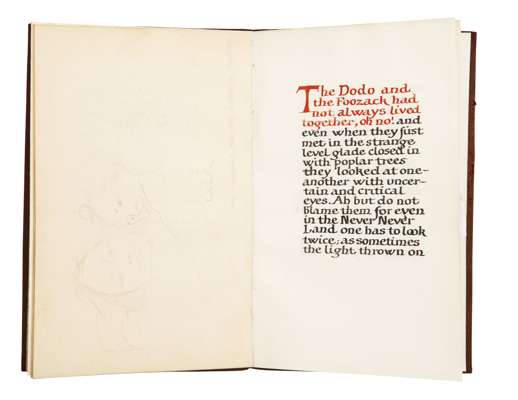 The Dodo and
the Foozack had
not always lived
together, oh no! and
even when they fust
met in the strange
level glade closed in
with poplar trees
they looked at one-
another with uncer-
tain and critical
eyes. Ah but do not
blame them for even
in the Never Never
Land one has to look
twice, as sometimes
the light thrown on